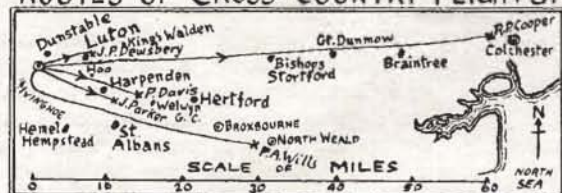 ROUTES OF CROSS COUNTRY FLIGHTS
Dunstable
Luton
King's Walden
J.P. Dewsbery
Hoo
Harpenden
P. Davis
Welwyn
J. Parker G.C.
Hertford
IVINGHOE
Hemel
Hempstead
St
Albans
BROXBOURNE
NORTH WEALD
P.A. Wills
Bishops
Stortford
Gt. Dunmow
Braintree
R.P. Cooper
Colchester
N
NORTH
SEA
SCALE OF MILES
0 10 20 30 40 50 60